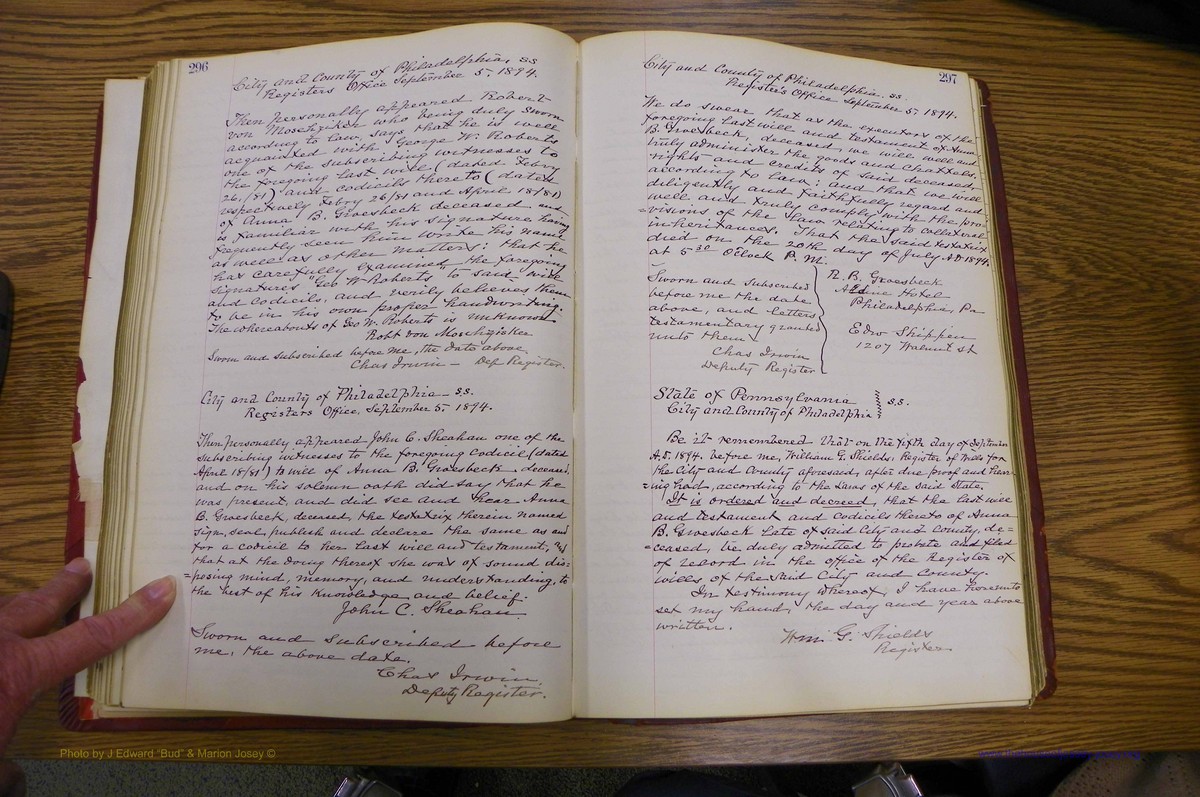 296
City and County of Philadelphia, ss
Registers Office September 5, 1894.
Then personally appeared Robert
von Moschzisker who being duly sworn
according to law, says that he is well
acquainted with George W. Roberts
one of the subscribing witnesses to
the foregoing last will (dated Febry
26, /81) and codicils thereto (dated
respectively Febry 26/81 and April 18/81)
of Anna B. Groesbeck deceased and
is familiar with his signature having
frequently seen him write his name
as well as other matters: that he
has carefully examined the foregoing
signatures "Geo W Roberts" to said will
and codicils, and verily believes them
to be in his own proper handwriting.
The whereabouts of Geo W. Roberts is unknown
Robt von Moschzisker
Sworn and subscribed before me, the date above
Chas Irwin — Dep Register.
City and County of Philadelphia ss.
Registers Office, September 5, 1894.
Then personally appeared John C. Sheahan one of the
subscribing witnesses to the foregoing codicil (dated
April 18/81) to will of Anna B. Groesbeck deceased,
and on his solemn oath did say that he
was present, and did see and hear Anna
B. Groesbeck, deceased, the testatrix therein named
sign, seal, publish and declare the same as and
for a codicil to her last will and testament, and
that at the doing thereof she was of sound dis=
=posing mind, memory, and understanding, to
the best of his knowledge and belief.
John C. Sheahan
Sworn and subscribed before
me, the above date.
Chas Irwin
Deputy Register.
297
City and County of Philadelphia ss.
Register's Office September 5, 1894.
We do swear that as the executors of the
foregoing last will and testament of Anna
B. Groesbeck, deceased, we will well and
truly administer the goods and chattels,
rights and credits of said deceased,
according to law; and that we will
diligently and faithfully regard and
well and truly comply with the pro=
=visions of the law relating to collateral
inheritances. That the said testatrix
died on the 20th day of July AD 1894,
at 5 30 O'clock P.M.
Sworn and Subscribed
before me the date
above, and letters
testamentary granted
unto them
Chas Irwin
Deputy Register
B. Groesbeck
Hotel
Philadelphia, Pa
Edw Shippen
1207 Walnut St
State of Pennsylvania
City and County of Philadelphia
s.s.
Be it remembered that on the fifth day of September
A.D. 1894, before me, William G. Shields, Register of Wills for
the City and County aforesaid, after due proof and hear=
=ing had, according to the Laws of the said State.
It is ordered and decreed, that the last will
and testament and codicils thereto of Anna
B. Groesbeck late of said City and County, de=
=ceased, be duly admitted to probate and filed
of record in the office of the Register of
Wills of the said City and County.
In testimony whereof, I have hereunto
set my hand, the day and year above
written.
Wm. G. Shields
Register
Photo by J Edward "Bud" & Marion Josey ©